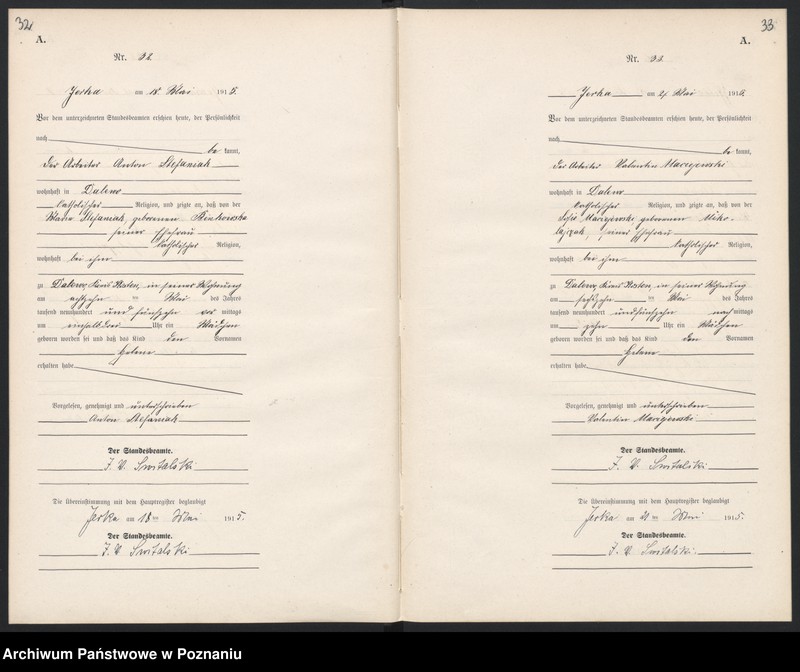 32
A.
Nr. 32.
Jerka am 18 Mai 1915.
Vor dem unterzeichneten Standesbeamten erschien heute, der Persönlichkeit
nach
be kannt,
der Arbeiter Anton Stefaniak
wohnhaft in Dalewo
katholischer Religion, und zeigte an, daß von der
Maria Stefaniak geborenen
seiner Ehefrau
katholischer Religion,
wohnhaft bei ihm
zu Dalewo, Kreis Kosten, in seiner Wohnung
am achtzehn ten Mai des Jahres
tausend neunhundert und fünfzehn vor mittags
um einhalb drei Uhr ein Mädchen
geboren worden sei und daß das Kind den Vornamen
Helene
erhalten habe
Vorgelesen, genehmigt und unterschrieben
Anton Stefaniak
Der Standesbeamte.
J. V. Switalski
Die Übereinstimmung mit dem Hauptregister beglaubigt
Jerka am 18ten Mai 1915.
Der Standesbeamte.
J. V. Switalski
33
A.
Nr. 33.
Jerka am 21 Mai 1915.
Vor dem unterzeichneten Standesbeamten erschien heute, der Persönlichkeit
nach
be kannt,
der Arbeiter Valentin Maciejewski
wohnhaft in Dalewo
katholischer Religion, und zeigte an, daß von der
Sofie Maciejewski geborenen Miko-
lajczak, seiner Ehefrau
katholischer Religion,
wohnhaft bei ihm
zu Dalewo, Kreis Kosten, in seiner Wohnung
am sechzehn ten Mai des Jahres
tausend neunhundert und fünfzehn nach mittags
um zehn Uhr ein Mädchen
geboren worden sei und daß das Kind den Vornamen
Helene
erhalten habe
Vorgelesen, genehmigt und unterschrieben
Valentin Maciejewski
Der Standesbeamte.
J. V. Switalski
Die Übereinstimmung mit dem Hauptregister beglaubigt
Jerka am 21ten Mai 1915.
Der Standesbeamte.
J. V. Switalski
Archiwum Państwowe w Poznaniu